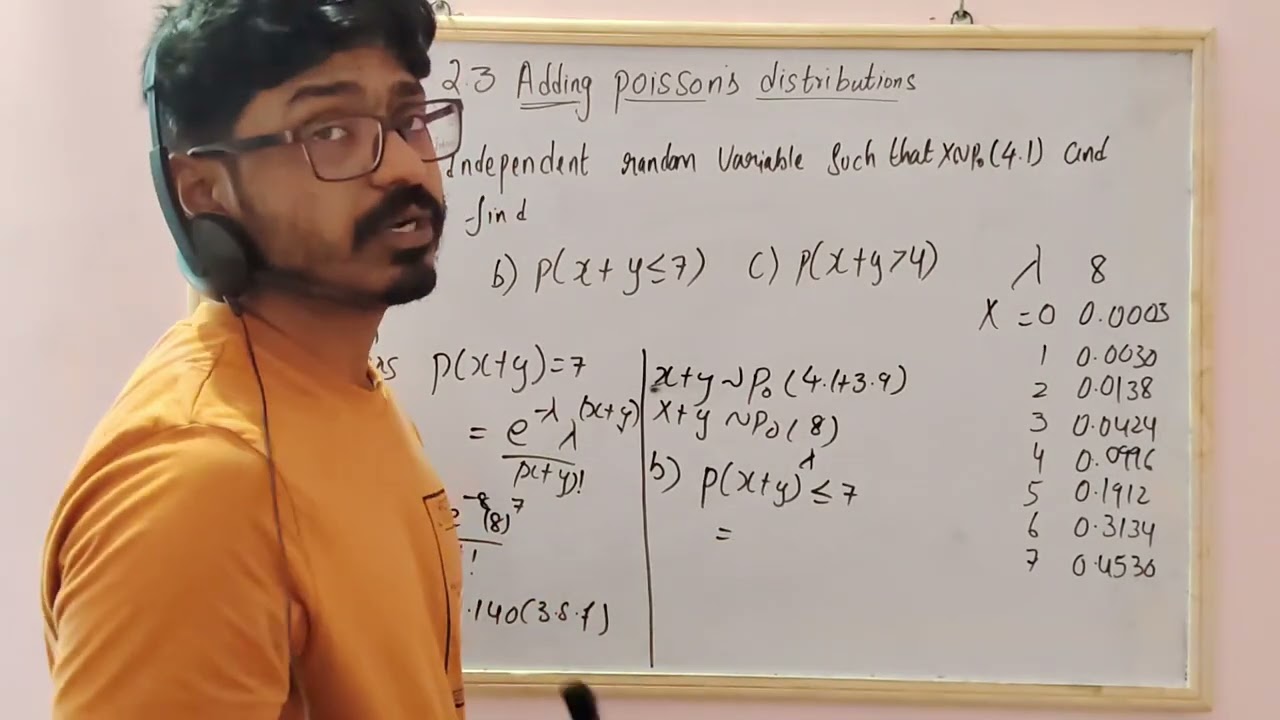 2.3 Adding poisson's distributions
independent random variable such that X~Po(4.1) and
find
b) P(x + y ≤ 7) c) P(x+y > 4)
P(x+y) = 7
= e^-λ λ^(x+y)
(x+y)!
e^-8 (8)^7
!
.140(3.s.f)
x+y ~ Po (4.1+3.9)
x+y ~ Po( 8)
λ
b) P(x+y) ≤ 7
=
λ 8
X = 0 0.0003
1 0.0030
2 0.0138
3 0.0424
4 0.0996
5 0.1912
6 0.3134
7 0.4530